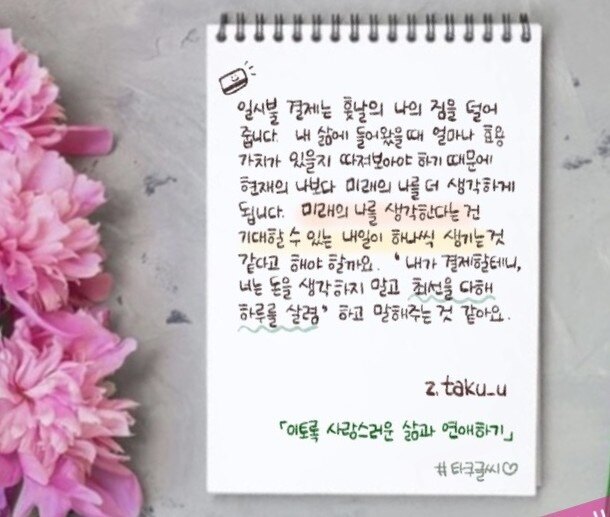 일시불 결제는 훗날의 나의 짐을 덜어
줍니다. 내 삶에 들어왔을때 얼마나 효용
가치가 있을지 따져보아야 하기 때문에
현재의 나보다 미래의 나를 더 생각하게
됩니다. 미래의 나를 생각한다는 건
기대할 수 있는 내일이 하나씩 생기는 것
같다고 해야 할까요. '내가 결제할테니,
너는 돈을 생각하지 말고 최선을 다해
하루를 살렴' 하고 말해주는 것 같아요.
z.taku_u
「이토록 사랑스러운 삶과 연애하기」
#타쿠글씨♡